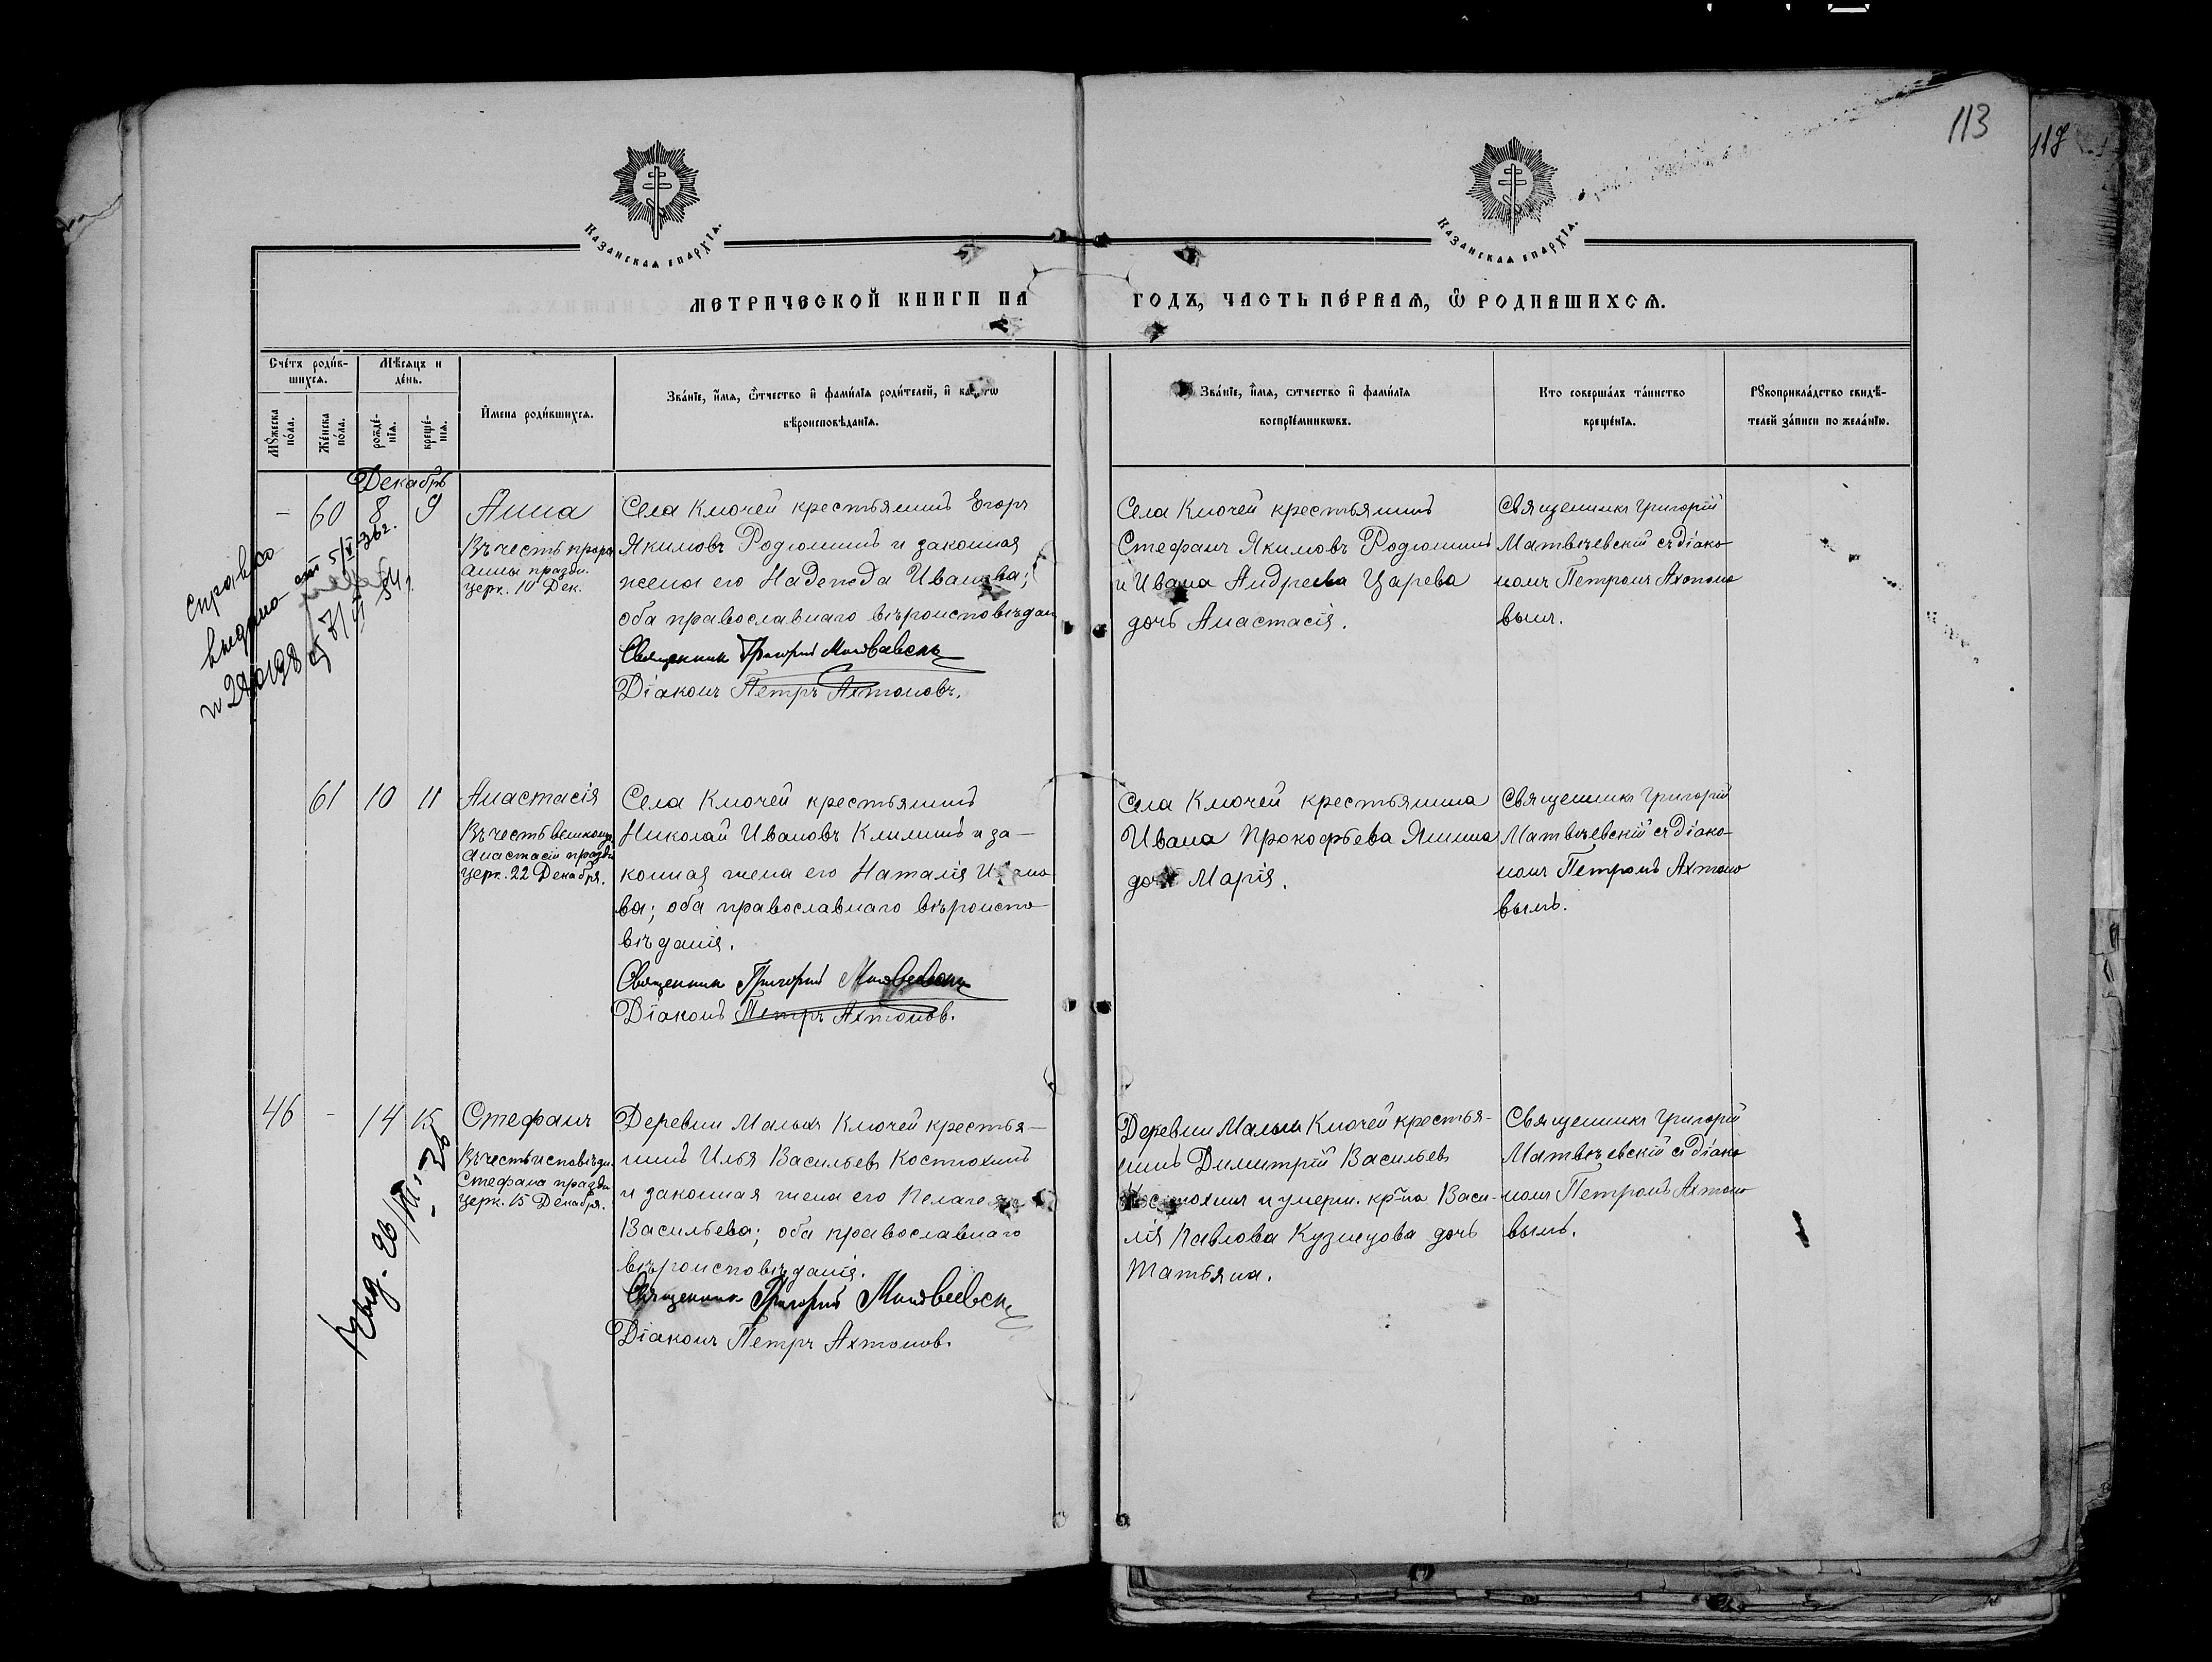 113
117
Казанская епархїа.
Казанская епархїа.
МЕТРИЧЕСКОЙ КНИГИ НА
ГОДЪ, ЧАСТЬ ПЕРВАЯ, Ѿ РОДИВШИХСЯ.
Счетъ родив-
шихся.
Мѣсяцъ и
день.
Мужеска
пола.
Женска
пола.
рожде-
нїя.
креще-
нїя.
Имена родившихся.
Званїе, имя, ѿтчество и фамилїя родителей, и
вѣроисповѣданїя.
Званїе, имя, ѿтчество и фамилїя
воспрїемниковъ.
Кто совершалъ таинство
крещенїя.
Рукоприкладство свидѣ-
телей записи по желанїю.
Декабрь
- 60 8 9
Анна
Въ честь прор.
Анны праздн.
церк. 10 Дек.
Села Ключей крестьянинъ Егоръ
Якимовъ Родюшинъ и законная
жена его Надежда Иванова;
оба православнаго вѣроисповѣдан
Священник Григорий Матвеевск
Дiаконъ Петръ Ахтоновъ.
Села Ключей крестьянинъ
Стефанъ Якимовъ Родюшинъ
и Ивана Андреева Царева
дочь Анастасiя.
Священникъ Григорiй
Матвѣевскiй съ дiако-
номъ Петромъ Ахтоно
вымъ.
Справка
выдана 5/V-36г.
61 10 11
Анастасiя
Въ честь великомуч.
Анастасiи праздн
церк. 22 Декабря.
Села Ключей крестьянинъ
Николай Ивановъ Климинъ и за-
конная жена его Наталiя
ва; оба православнаго вѣроиспо-
вѣданiя.
Священник Григорий Матвеевск
Дiаконъ Петръ Ахтонов.
Села Ключей крестьянина
Ивана Прокофьева Яшина
дочь Марiя.
Священникъ Григорiй
Матвѣевскiй съ Дiако-
номъ Петромъ Ахтоно
вымъ.
46 - 14 15
Стефанъ
Въ честь исповѣдн.
Стефана праздн
церк. 15 Декабря.
Деревни Малыхъ Ключей крестья-
нинъ Илья Васильевъ Костюхинъ
и законная жена его Пелагея
Васильева; оба православнаго
вѣроисповѣданiя.
Священник Григорий Матвеевск
Дiаконъ Петръ Ахтонов.
Деревни Малыхъ Ключей крестья-
нинъ Димитрiй Васильевъ
Костюхинъ и умерш. кр-на Васи-
лiя Павлова Кузнецова дочь
Татьяна.
Священникъ Григорiй
Матвѣевскiй съ Дiако
номъ Петромъ Ахтоно
вымъ.